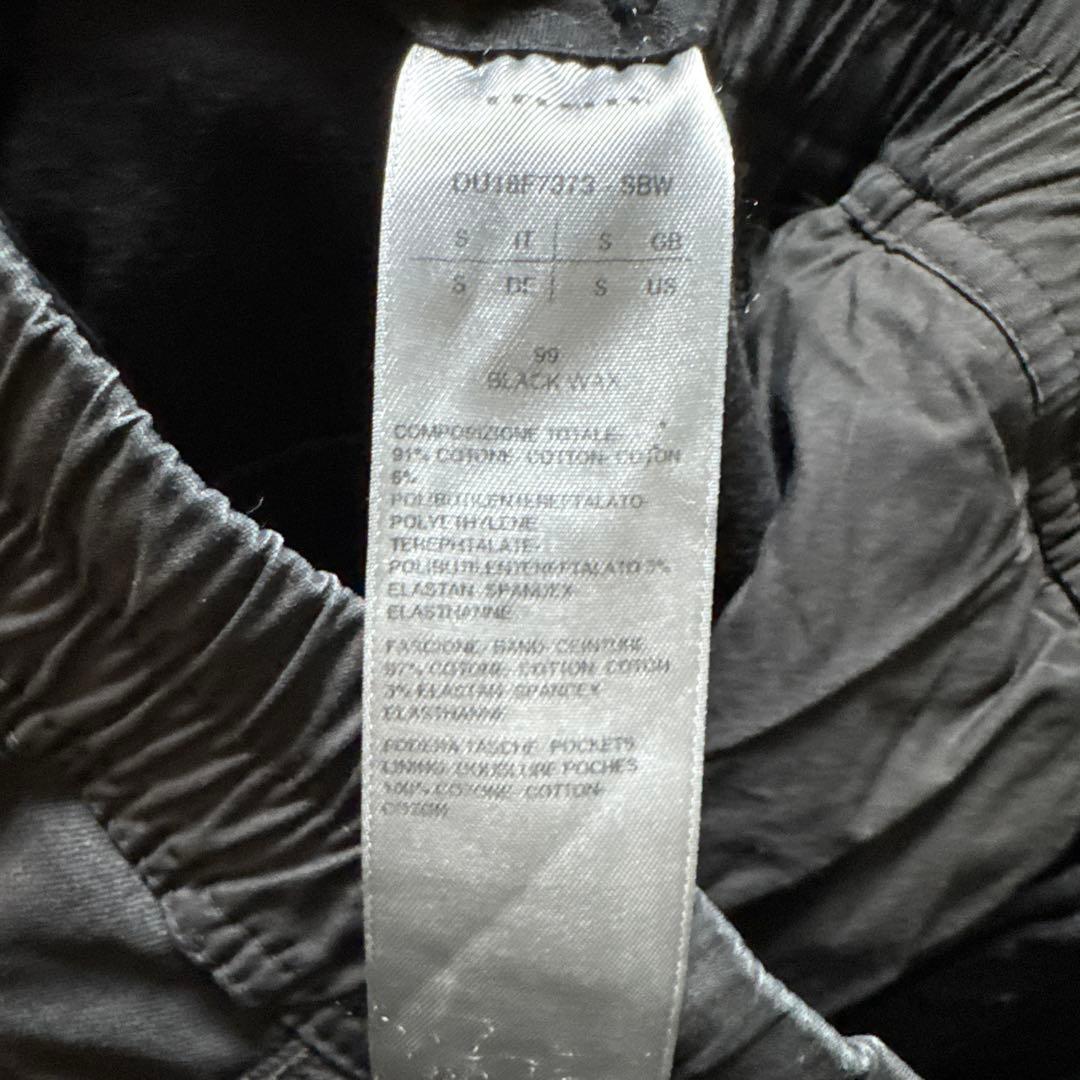 DU18F7373 - SBW
S IT S GB
S DE S US
99
BLACK WAX
COMPOSIZIONE TOTALE-
91% COTONE COTTON-COTON
6%
POLIBUTILENTEREFTALATO-
POLYETHYLENE
TEREPHTALATE-
POLIBUTILENTEREFTALATO 3%
ELASTAN SPANDEX-
ELASTHANNE
FASCIONE BAND CEINTURE
97% COTONE COTTON COTON
3% ELASTAN SPANDEX-
ELASTHANNE
FODERA TASCHE POCKETS
LINING DOUBLURE POCHES
100% COTONE COTTON-
COTON